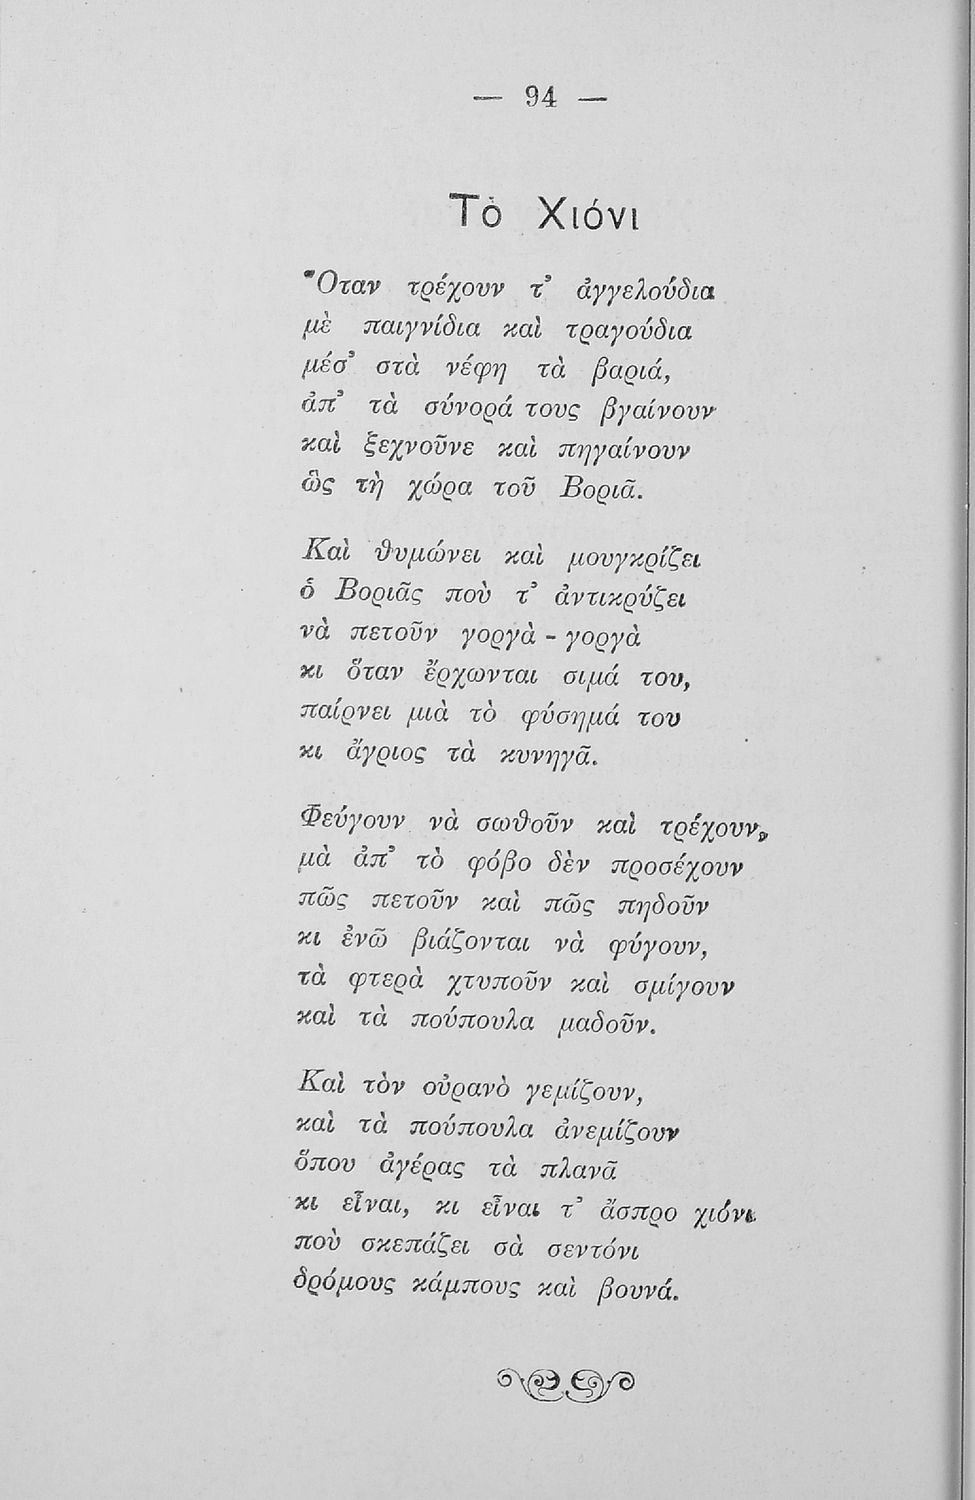 — 94 —
Τὸ Χιόνι
Ὅταν τρέχουν τ᾿ ἀγγελούδια
μὲ παιγνίδια καὶ τραγούδια
μέσ᾿ στὰ νέφη τὰ βαριά,
ἀπ᾿ τὰ σύνορά τους βγαίνουν
καὶ ξεχνοῦνε καὶ πηγαίνουν
ὣς τὴ χώρα τοῦ Βοριᾶ.
Καὶ θυμώνει καὶ μουγκρίζει
ὁ Βοριᾶς ποὺ τ᾿ ἀντικρύζει
νὰ πετοῦν γοργὰ - γοργὰ
κι ὅταν ἔρχωνται σιμά του,
παίρνει μιὰ τὸ φύσημά του
κι ἄγριος τὰ κυνηγᾶ.
Φεύγουν νὰ σωθοῦν καὶ τρέχουν,
μὰ ἀπ᾿ τὸ φόβο δὲν προσέχουν
πῶς πετοῦν καὶ πῶς πηδοῦν
κι ἐνῶ βιάζονται νὰ φύγουν,
τὰ φτερὰ χτυποῦν καὶ σμίγουν
καὶ τὰ πούπουλα μαδοῦν.
Καὶ τὸν οὐρανὸ γεμίζουν,
καὶ τὰ πούπουλα ἀνεμίζουν
ὅπου ἀγέρας τὰ πλανᾶ
κι εἶναι, κι εἶναι τ᾿ ἄσπρο χιόνι
ποὺ σκεπάζει σὰ σεντόνι
δρόμους κάμπους καὶ βουνά.